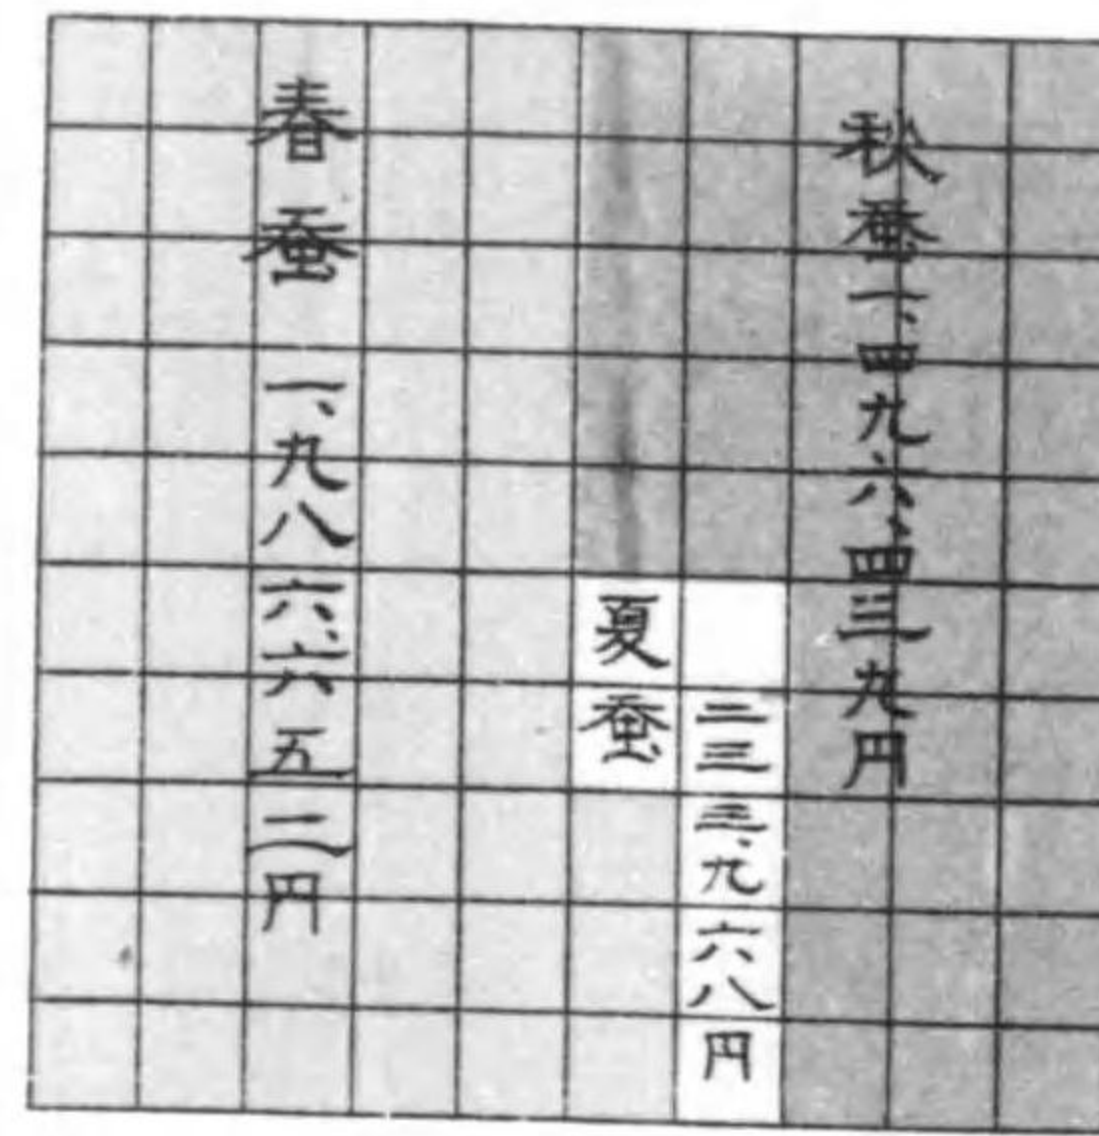 秋蚕一、四九六、四三九円
夏蚕
二三三、九六八円
春蚕 一、九八六、六五二円